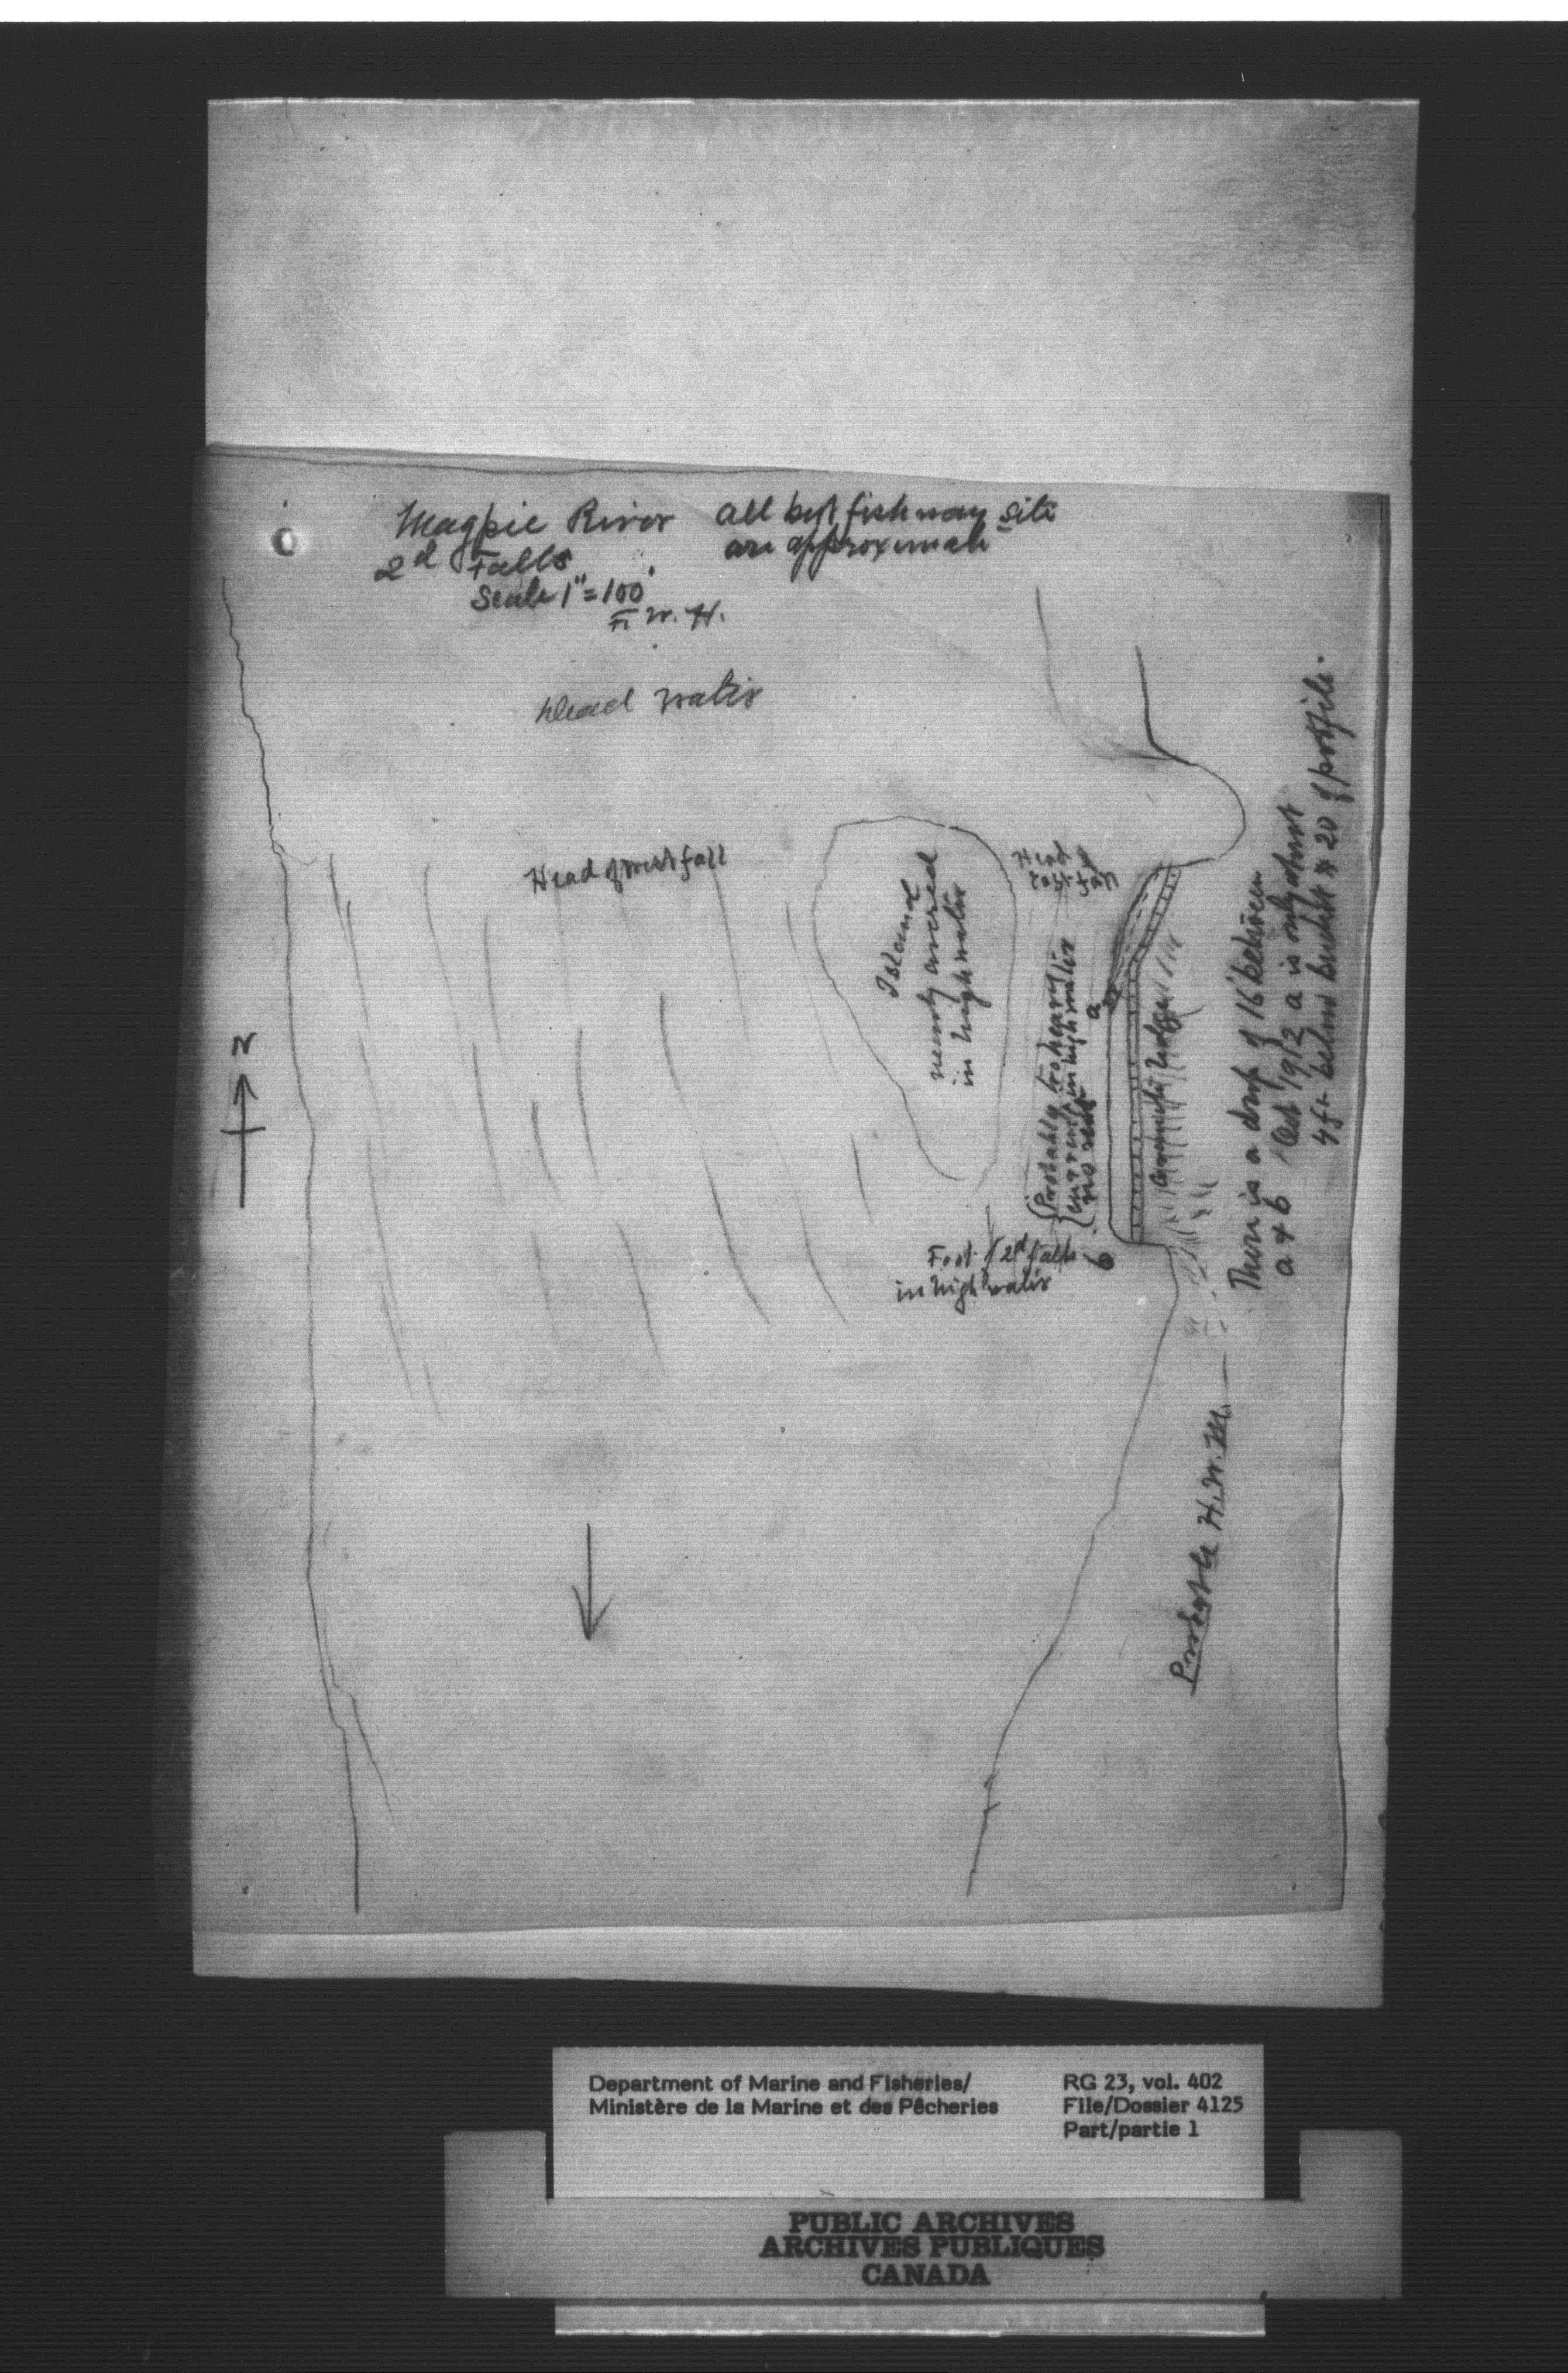 Magpie River
2d Falls
Scale 1" = 100'
F. W. H.
All but fishway site
are approximate
Dead water
Head of west fall
Head
east fall
Island
nearly covered
in high water
{Probably too heavy for
{current in high water
no rest
a
b
Foot of 2d falls
in high water
N
There is a drop of 16' between
a & b Oct 1912 a is only about
4 ft below bucket # 20 of profile.
Probable H.W.M.
Department of Marine and Fisheries/
Ministère de la Marine et des Pêcheries
RG 23, vol. 402
File/Dossier 4125
Part/partie 1
PUBLIC ARCHIVES
ARCHIVES PUBLIQUES
CANADA